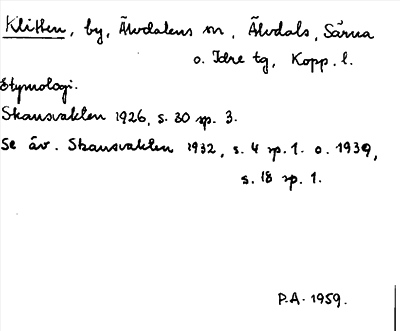 Klitten, by, Älvdalens sn, Älvdals, Särna
o. Idre tg, Kopp. l.
Etymologi.
Skansvakten 1926, s. 30 sp. 3.
Se äv. Skansvakten 1932, s. 4 sp. 1. o. 1939,
s. 18 sp. 1.
P.A. 1959.